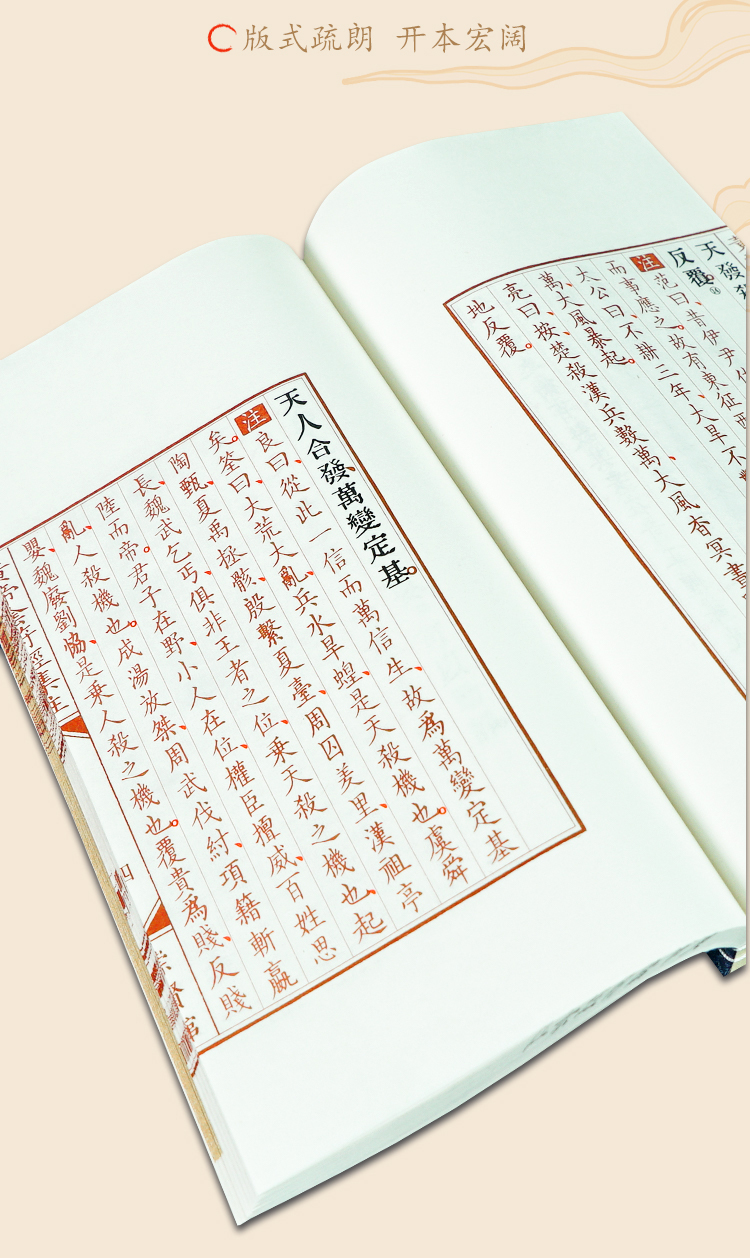 版式疏朗 开本宏阔
天發殺
反覆。⑭
注 范曰、昔伊尹佐
而事應之。故有東征西
太公曰、不耕三年、大旱不
萬、大風暴起。
亮曰、按楚殺漢兵數萬、大風杳冥晝
地反覆。
天人合發、萬變定基。
注 良曰、從此一信而萬信生、故為萬變定基
矣。筌曰、大荒大亂、兵水旱蝗、是天殺機也。虞舜
陶甄、夏禹拯骸、殷繫夏臺、周囚羑里、漢祖亭
長、魏武乞丐、俱非王者之位、乘天殺之機也、起
陸而帝。君子在野、小人在位、權臣擅威、百姓思
亂、人殺機也。成湯放桀、周武伐紂、項籍斬嬴
嬰、魏廢劉協、是乘人殺之機也。覆貴為賤、反賤
四
崇賢館